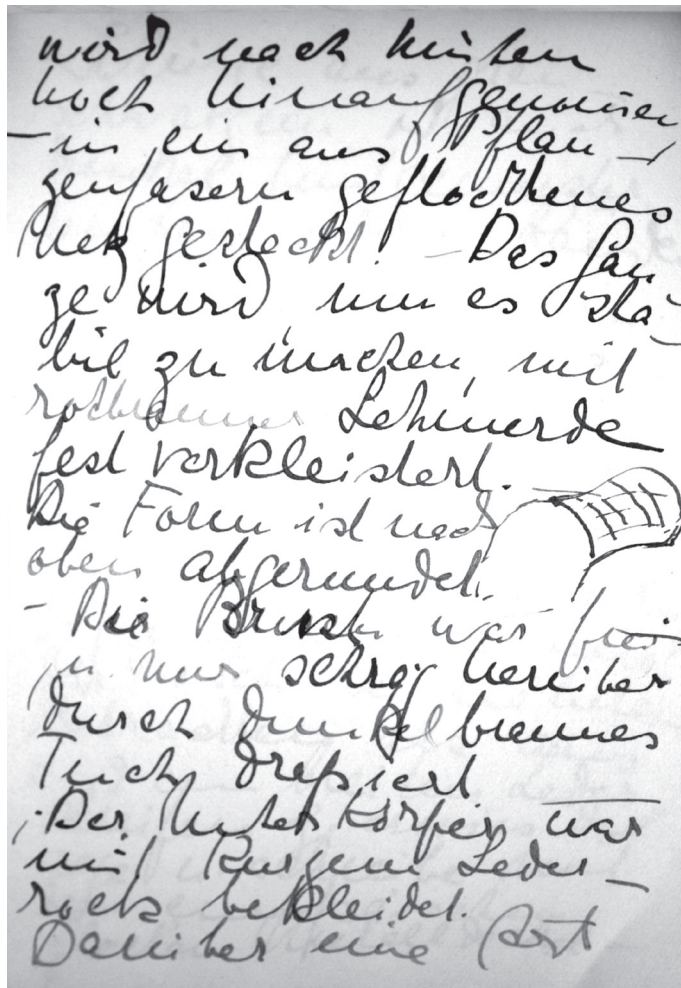 wird nach hinten
hoch hinaufgenommen
– in ein aus Pflan-
zenfasern geflochtenes
Netz gesteckt. – Das Gan
ze wird, um es sta-
bil zu machen, mit
rotbrauner Lehmerde
fest verkleistert.
Die Form ist nach
oben abgerundet.
– Die Brust war frei
u. nur schräg herüber
durch dunkelbraunes
Tuch drapiert
. Der Unterkörper war
mit kurzem Leder-
rock bekleidet.
Darüber eine Art